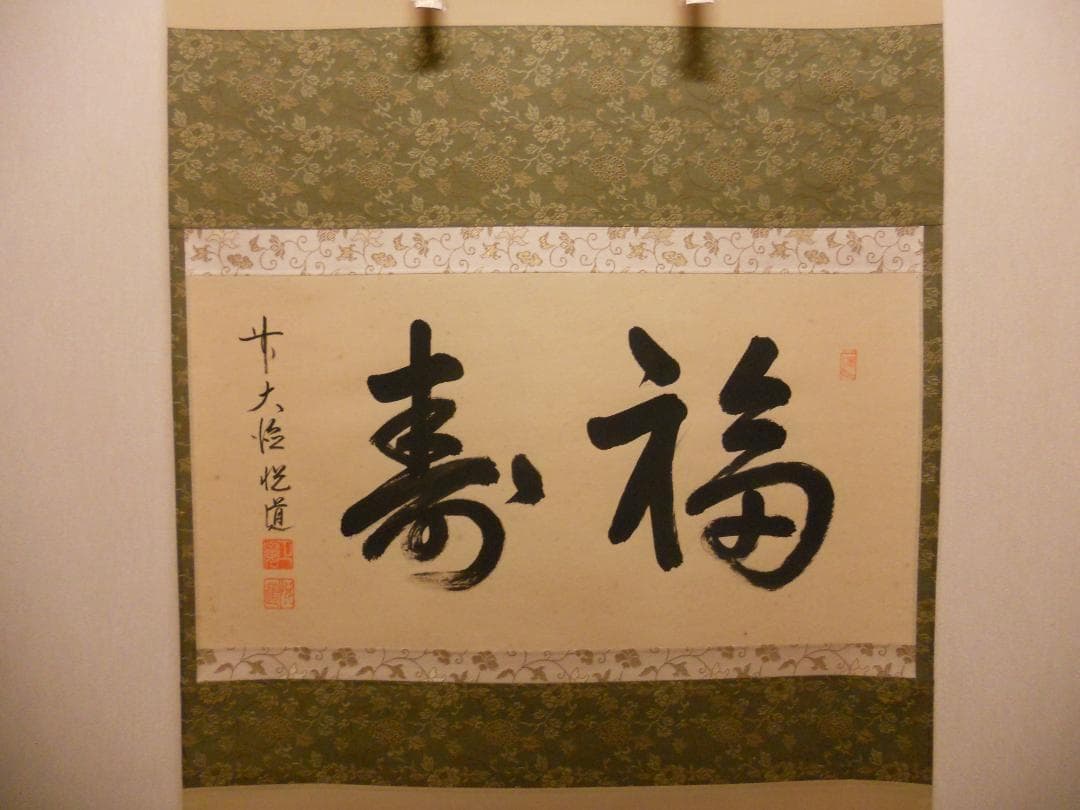 福寿
大徳悦道